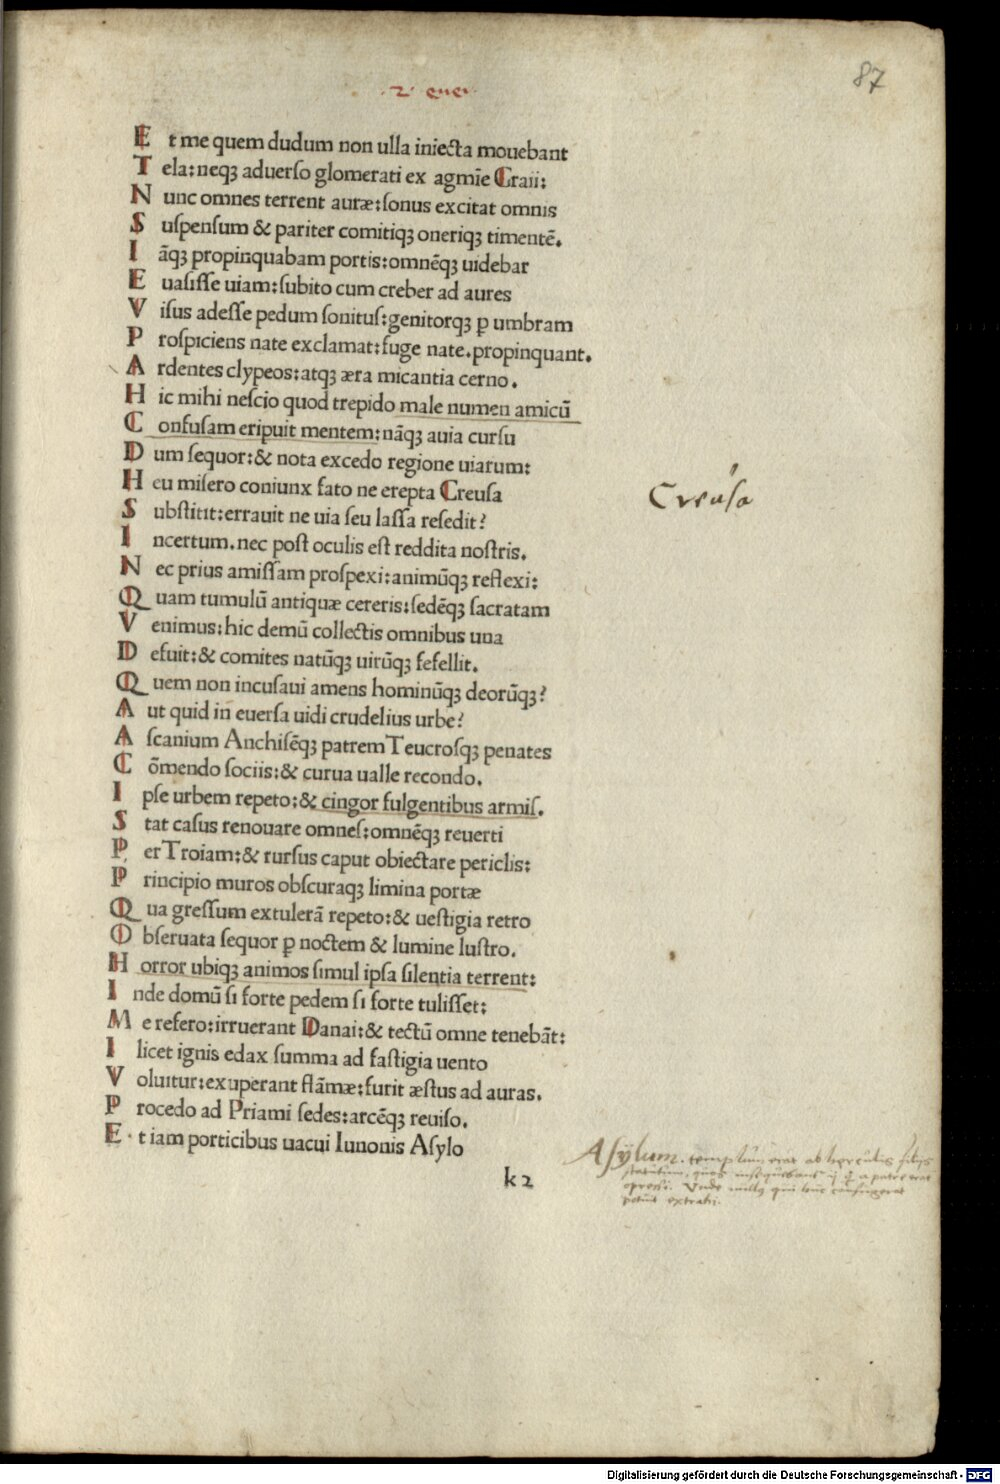 87
.2. enei.
Et me quem dudum non ulla iniecta mouebant
Tela: neqꝫ aduerſo glomerati ex agmīe Graii:
Nunc omnes terrent auræ: ſonus excitat omnis
Suſpenſum & pariter comitiqꝫ oneriqꝫ timentē.
Iāqꝫ propinquabam portis: omnēqꝫ uidebar
Euaſiſſe uiam: ſubito cum creber ad aures
Viſus adeſſe pedum ſonituſ: genitorqꝫ ꝑ umbram
Proſpiciens nate exclamat: fuge nate. propinquant.
Ardentes clypeos: atqꝫ æra micantia cerno.
Hic mihi neſcio quod trepido male numen amicū
Confuſam eripuit mentem: nāqꝫ auia curſu
Dum ſequor: & nota excedo regione uiarum:
Heu miſero coniunx fato ne erepta Creuſa
Subſtitit: errauit ne uia ſeu laſſa reſedit?
Incertum. nec poſt oculis eſt reddita noſtris.
Nec prius amiſſam proſpexi: animūqꝫ reflexi:
Quam tumulū antiquæ cereris: ſedēqꝫ ſacratam
Venimus: hic demū collectis omnibus una
Defuit: & comites natūqꝫ uirūqꝫ fefellit.
Quem non incuſaui amens hominūqꝫ deorūqꝫ?
Aut quid in euerſa uidi crudelius urbe?
Aſcanium Anchiſēqꝫ patrem Teucroſqꝫ penates
Cōmendo ſociis: & curua ualle recondo.
Ipſe urbem repeto: & cingor fulgentibus armiſ.
Stat caſus renouare omneſ: omnēqꝫ reuerti
Per Troiam: & rurſus caput obiectare periclis:
Principio muros obſcuraqꝫ limina portæ
Qua greſſum extulerā repeto: & ueſtigia retro
Obſeruata ſequor ꝑ noctem & lumine luſtro.
Horror ubiqꝫ animos ſimul ipſa ſilentia terrent:
Inde domū ſi forte pedem ſi forte tuliſſet:
Me refero: irruerant Danai: & tectū omne tenebāt:
Ilicet ignis edax ſumma ad faſtigia uento
Voluitur: exuperant flāmæ: furit æſtus ad auras.
Procedo ad Priami ſedes: arcēqꝫ reuiſo.
Et iam porticibus uacui Iunonis Aſylo
k2
Creuſa
Aſylum. templum erat ab herculis filijs
a patre erat
oppreſſi. Vnde qui huc confugeret
potuit extrahi.
Digitalisierung gefördert durch die Deutsche Forschungsgemeinschaft - DFG